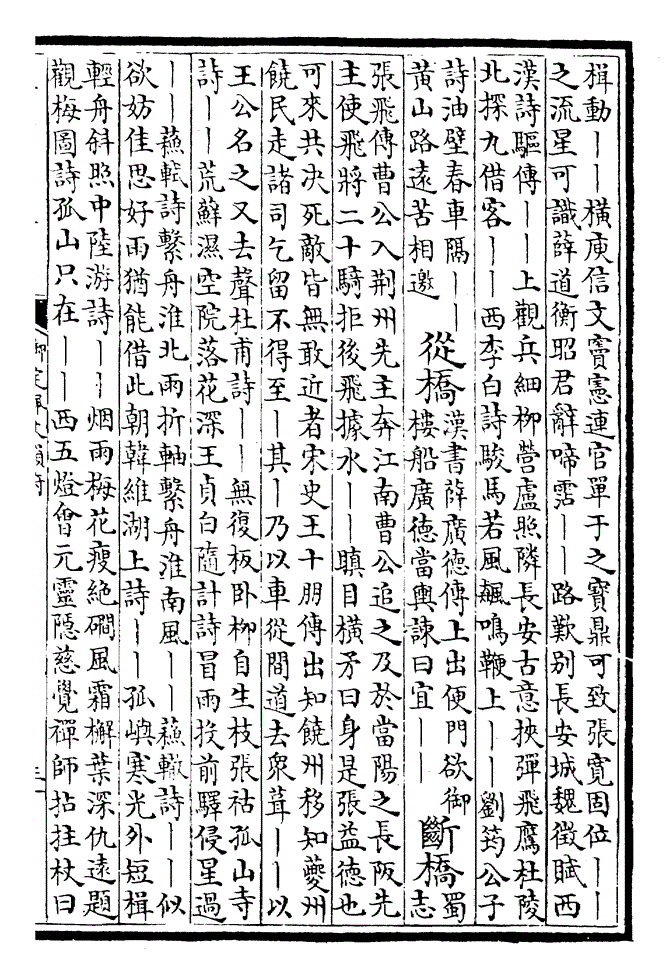 楫動——橫庾信文竇憲連官單于之寶鼎可致張寬固位——
之流星可識薛道衡昭君辭啼霑——路歎別長安城魏徵賦西
漢詩驅傳——上觀兵細柳營盧照隣長安古意挾彈飛鷹杜陵
北探九借客——西李白詩駿馬若風飆鳴鞭上——劉筠公子
詩油壁春車隔——
黃山路遠苦相邀
從橋
漢書薛廣德傳上出便門欲御
樓船廣德當輿諫曰宜——
斷橋
蜀
志
張飛傳曹公入荆州先主奔江南曹公追之及於當陽之長阪先
主使飛將二十騎拒後飛據水——瞋目橫矛曰身是張益德也
可來共決死敵皆無敢近者宋史王十朋傳出知饒州移知夔州
饒民走諸司乞留不得至—其—乃以車從間道去衆葺——以
王公名之又去聲杜甫詩——無復板卧柳自生枝張祜孤山寺
詩——荒蘚濕空院落花深王貞白隨計詩冒雨投前驛侵星過
——蘇軾詩繫舟淮北雨折軸繫舟淮南風——蘇轍詩——似
欲妨佳思好雨猶能借此朝韓維湖上詩——孤嶼寒光外短楫
輕舟斜照中陸游詩——烟雨梅花瘦絶磵風霜槲葉深仇遠題
觀梅圖詩孤山只在——西五燈會元靈隠慈覺禪師拈拄杖曰